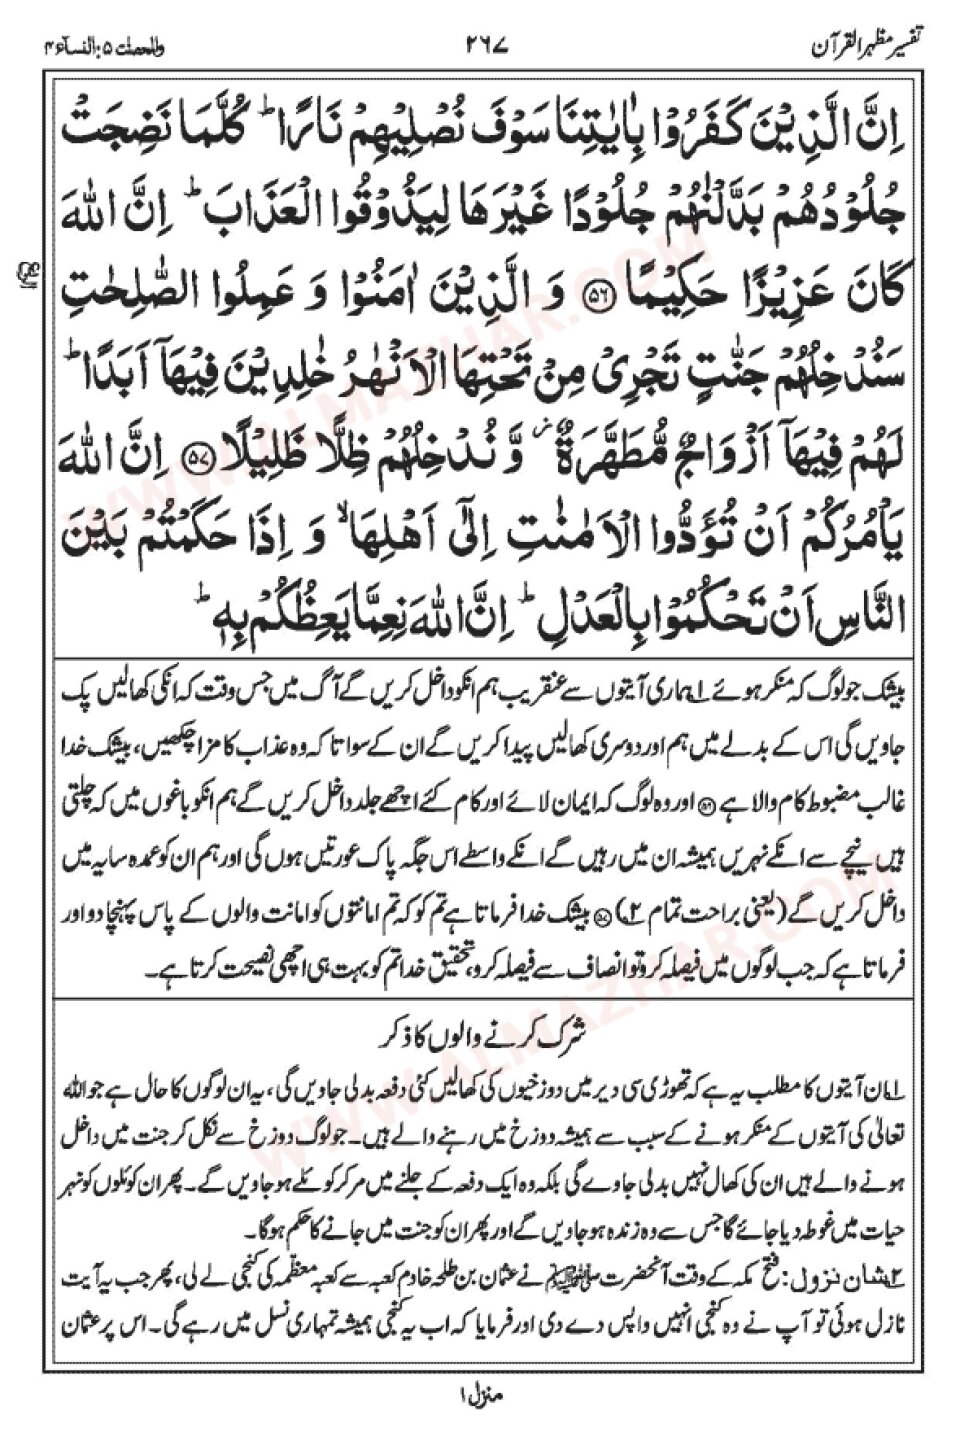 تفسیر مظہر القرآن
۲۶۷
والمحصنٰت ۵: النسآء ۴
اِنَّ الَّذِيْنَ كَفَرُوْا بِاٰيٰتِنَا سَوْفَ نُصْلِيْهِمْ نَارًا ؕ كُلَّمَا نَضِجَتْ
جُلُوْدُهُمْ بَدَّلْنٰهُمْ جُلُوْدًا غَيْرَهَا لِيَذُوْقُوا الْعَذَابَ ؕ اِنَّ اللّٰهَ
كَانَ عَزِيْزًا حَكِيْمًا ﴿۵۶﴾ وَ الَّذِيْنَ اٰمَنُوْا وَ عَمِلُوا الصّٰلِحٰتِ
سَنُدْخِلُهُمْ جَنّٰتٍ تَجْرِىْ مِنْ تَحْتِهَا الْاَنْهٰرُ خٰلِدِيْنَ فِيْهَاۤ اَبَدًا ؕ
لَهُمْ فِيْهَاۤ اَزْوَاجٌ مُّطَهَّرَةٌ ؗ وَّ نُدْخِلُهُمْ ظِلًّا ظَلِيْلًا ﴿۵۷﴾ اِنَّ اللّٰهَ
يَاْمُرُكُمْ اَنْ تُؤَدُّوا الْاَمٰنٰتِ اِلٰۤى اَهْلِهَا ۙ وَ اِذَا حَكَمْتُمْ بَيْنَ
النَّاسِ اَنْ تَحْكُمُوْا بِالْعَدْلِ ؕ اِنَّ اللّٰهَ نِعِمَّا يَعِظُكُمْ بِهٖ ؕ
بیشک جو لوگ کہ منکر ہوئے ۱؎ ہماری آیتوں سے عنقریب ہم انکو داخل کریں گے آگ میں جس وقت کہ انکی کھالیں پک
جاویں گی اس کے بدلے میں ہم اور دوسری کھالیں پیدا کریں گے ان کے سوا تا کہ وہ عذاب کا مزا چکھیں، بیشک خدا
غالب مضبوط کام والا ہے ﴿۵۶﴾ اور وہ لوگ کہ ایمان لائے اور کام کئے اچھے جلد داخل کریں گے ہم انکو باغوں میں کہ چلتی
ہیں نیچے سے انکے نہریں ہمیشہ ان میں رہیں گے انکے واسطے اس جگہ پاک عورتیں ہوں گی اور ہم ان کو عمدہ سایہ میں
داخل کریں گے (یعنی براحت تمام ۲؎) ﴿۵۷﴾ بیشک خدا فرماتا ہے تم کو کہ تم امانتوں کو امانت والوں کے پاس پہنچا دو اور
فرماتا ہے کہ جب لوگوں میں فیصلہ کرو تو انصاف سے فیصلہ کرو، تحقیق خدا تم کو بہت ہی اچھی نصیحت کرتا ہے۔
شرک کرنے والوں کا ذکر
۱؎ ان آیتوں کا مطلب یہ ہے کہ تھوڑی سی دیر میں دوزخیوں کی کھالیں کئی دفعہ بدلی جاویں گی، یہ ان لوگوں کا حال ہے جو اللہ
تعالیٰ کی آیتوں کے منکر ہونے کے سبب سے ہمیشہ دوزخ میں رہنے والے ہیں۔ جو لوگ دوزخ سے نکل کر جنت میں داخل
ہونے والے ہیں ان کی کھال نہیں بدلی جاوے گی بلکہ وہ ایک دفعہ کے جلنے میں مر کر کوئلے ہو جاویں گے۔ پھر ان کوئلوں کو نہر
حیات میں غوطہ دیا جائے گا جس سے وہ زندہ ہو جاویں گے اور پھر ان کو جنت میں جانے کا حکم ہوگا۔
۲؎ شان نزول: فتح مکہ کے وقت آنحضرت ﷺ نے عثمان بن طلحہ خادم کعبہ سے کعبہ معظمہ کی کنجی لے لی، پھر جب یہ آیت
نازل ہوئی تو آپ نے وہ کنجی انہیں واپس دے دی اور فرمایا کہ اب یہ کنجی ہمیشہ تمہاری نسل میں رہے گی۔ اس پر عثمان
منزل ۱
WWW.ALMAZHAR.COM
WWW.ALMAZHAR.COM